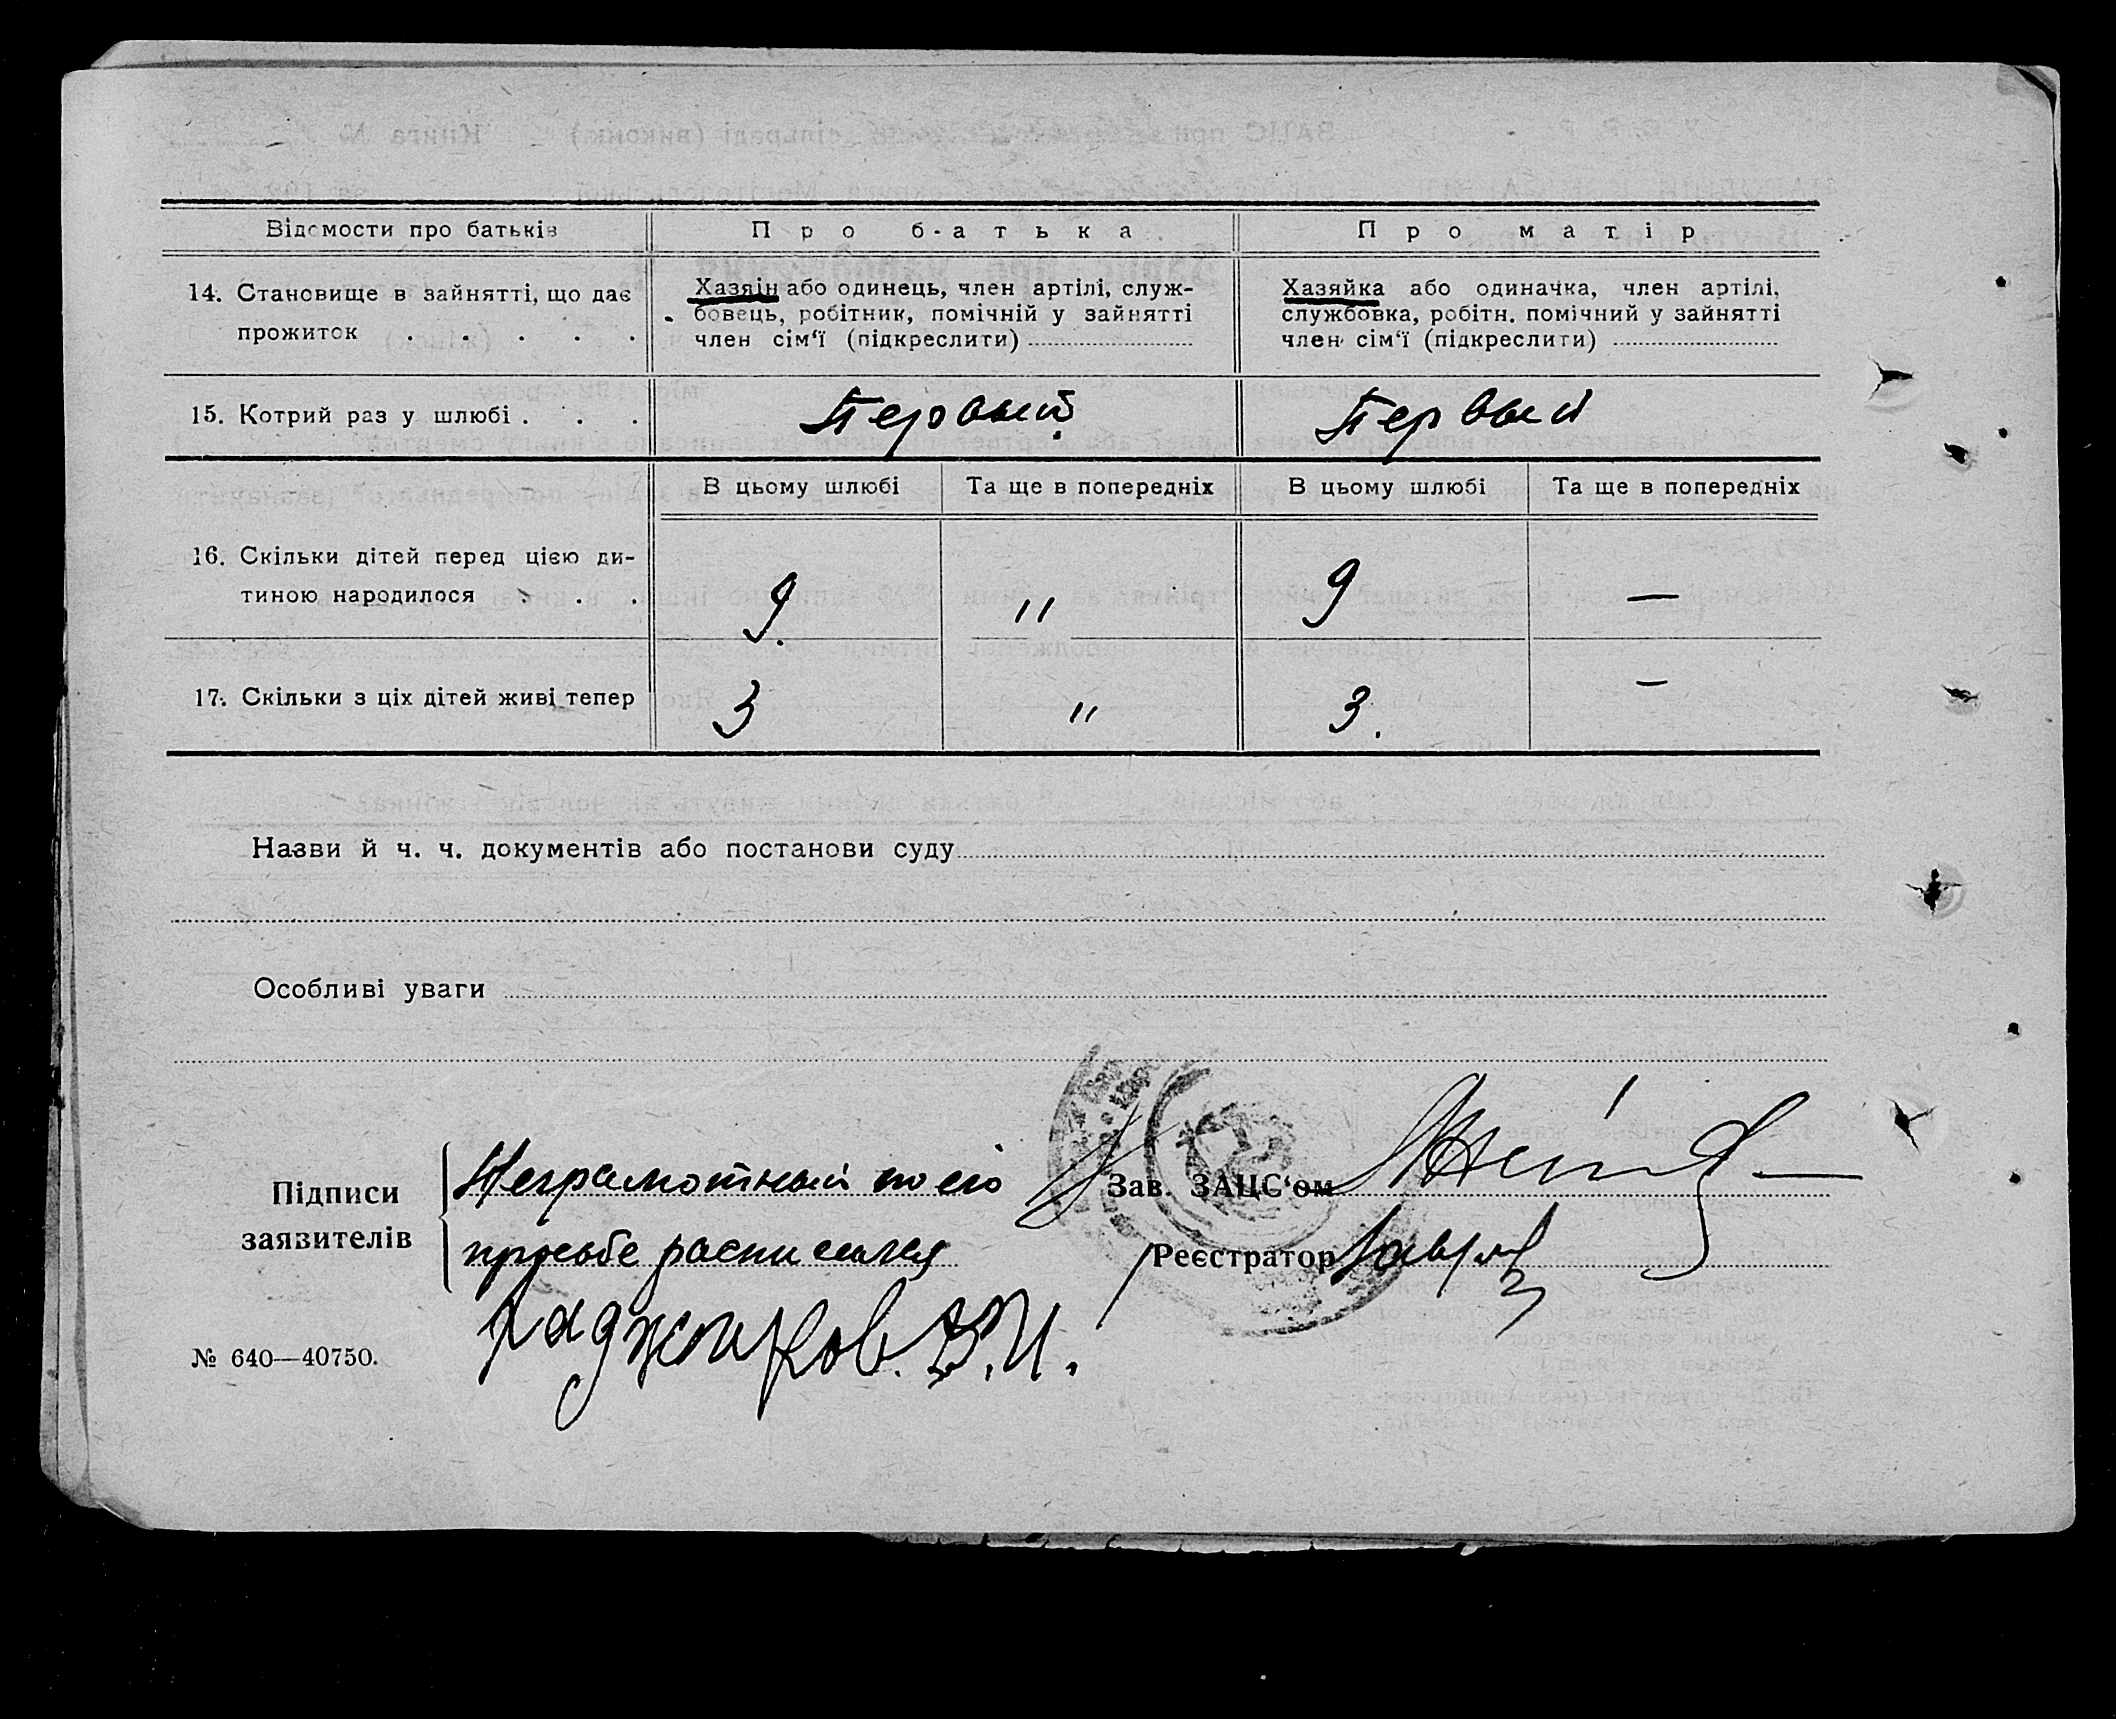 Відомости про батьків
Про батька
Про матір
14. Становище в зайнятті, що дає
прожиток . . . . .
Хазяін або одинець, член артілі, служ-
бовець, робітник, помічній у зайнятті
член сім‘ї (підкреслити)
Хазяйка або одиначка, член артілі,
службовка, робітн. помічний у зайнятті
член сім‘ї (підкреслити)
15. Котрий раз у шлюбі . . .
Первый
Первый
В цьому шлюбі
Та ще в попередніх
В цьому шлюбі
Та ще в попередніх
16. Скільки дітей перед цією ди-
тиною народилося . . .
9.
"
9
—
17. Скільки з ціх дітей живі тепер
3
"
3.
—
Назви й ч. ч. документів або постанови суду
Особливі уваги
Підписи
заявителів
Неграмотный по его
просьбе расписался
Раджиков. В. И.
Зав. ЗАЦС‘ом
Реєстратор
№ 640—40750.